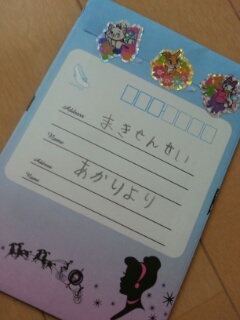 Address
まきせんせい
Name
あかりより
Address
Name